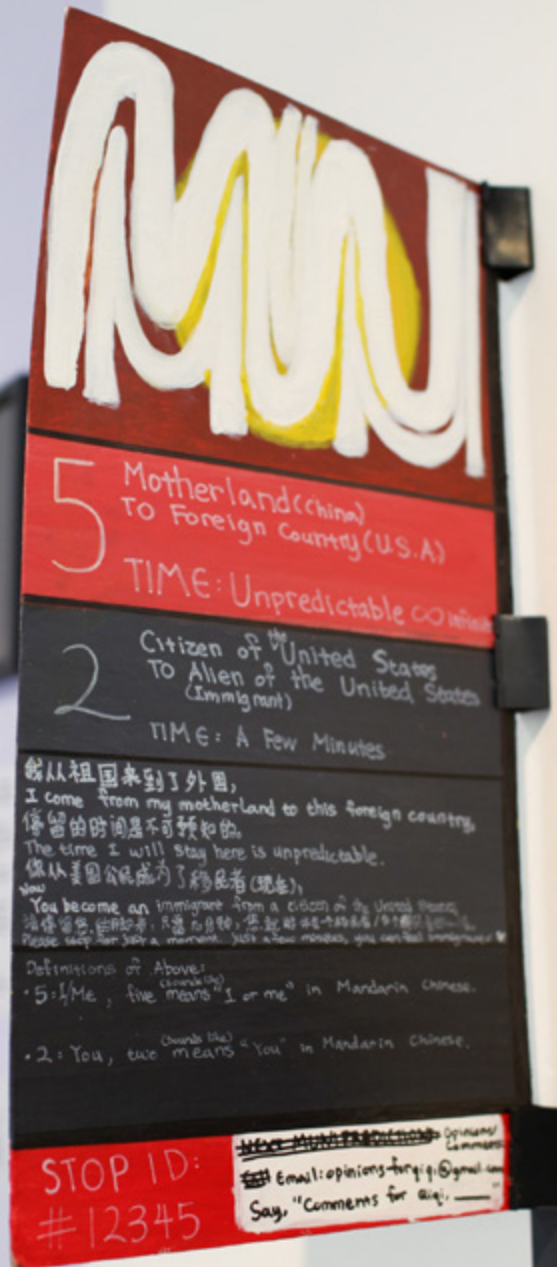 MUNI
5
Motherland (China)
TO Foreign Country (U.S.A)
TIME: Unpredictable ∞ infinit
2
Citizen of the United States
TO Alien of the United States
(Immigrant)
TIME: A Few Minutes
我从祖国来到了外国,
I come from my motherland to this foreign country,
停留的时间是不可预知的。
The time I will stay here is unpredictable.
你从美国公民成为了移民者(现在),
Now
You become an immigrant from a citizen of the United States,
Please stop for just a moment. Just a few minutes, you can feel
Definitions of Above:
(sounds like)
·5:I/Me, five means "I or me" in Mandarin Chinese.
(sounds like)
·2: You, two means "You" in Mandarin Chinese.
STOP ID:
#12345
NEXT MUNI PREDICTIONS Opinions/
Comments
Email: opinions-forqiqi@gmail.com
Say, "Comments for Qiqi, ____"